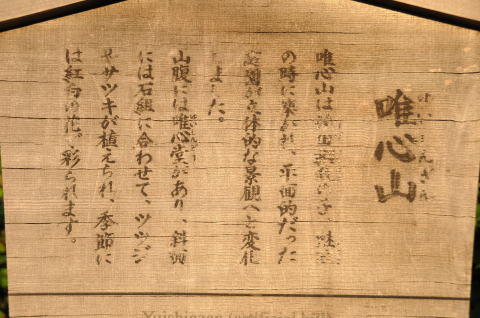 唯心山
ゆいしんざん
唯心山は池田
の時に築かれ、平面的だった
庭園が立体的な景観へと変化
しました。
山腹には唯心堂があり、斜面
には石組に合わせて、ツツジ
やサツキが植えられ、季節に
は紅白の花で彩られます。
Yuishinzan